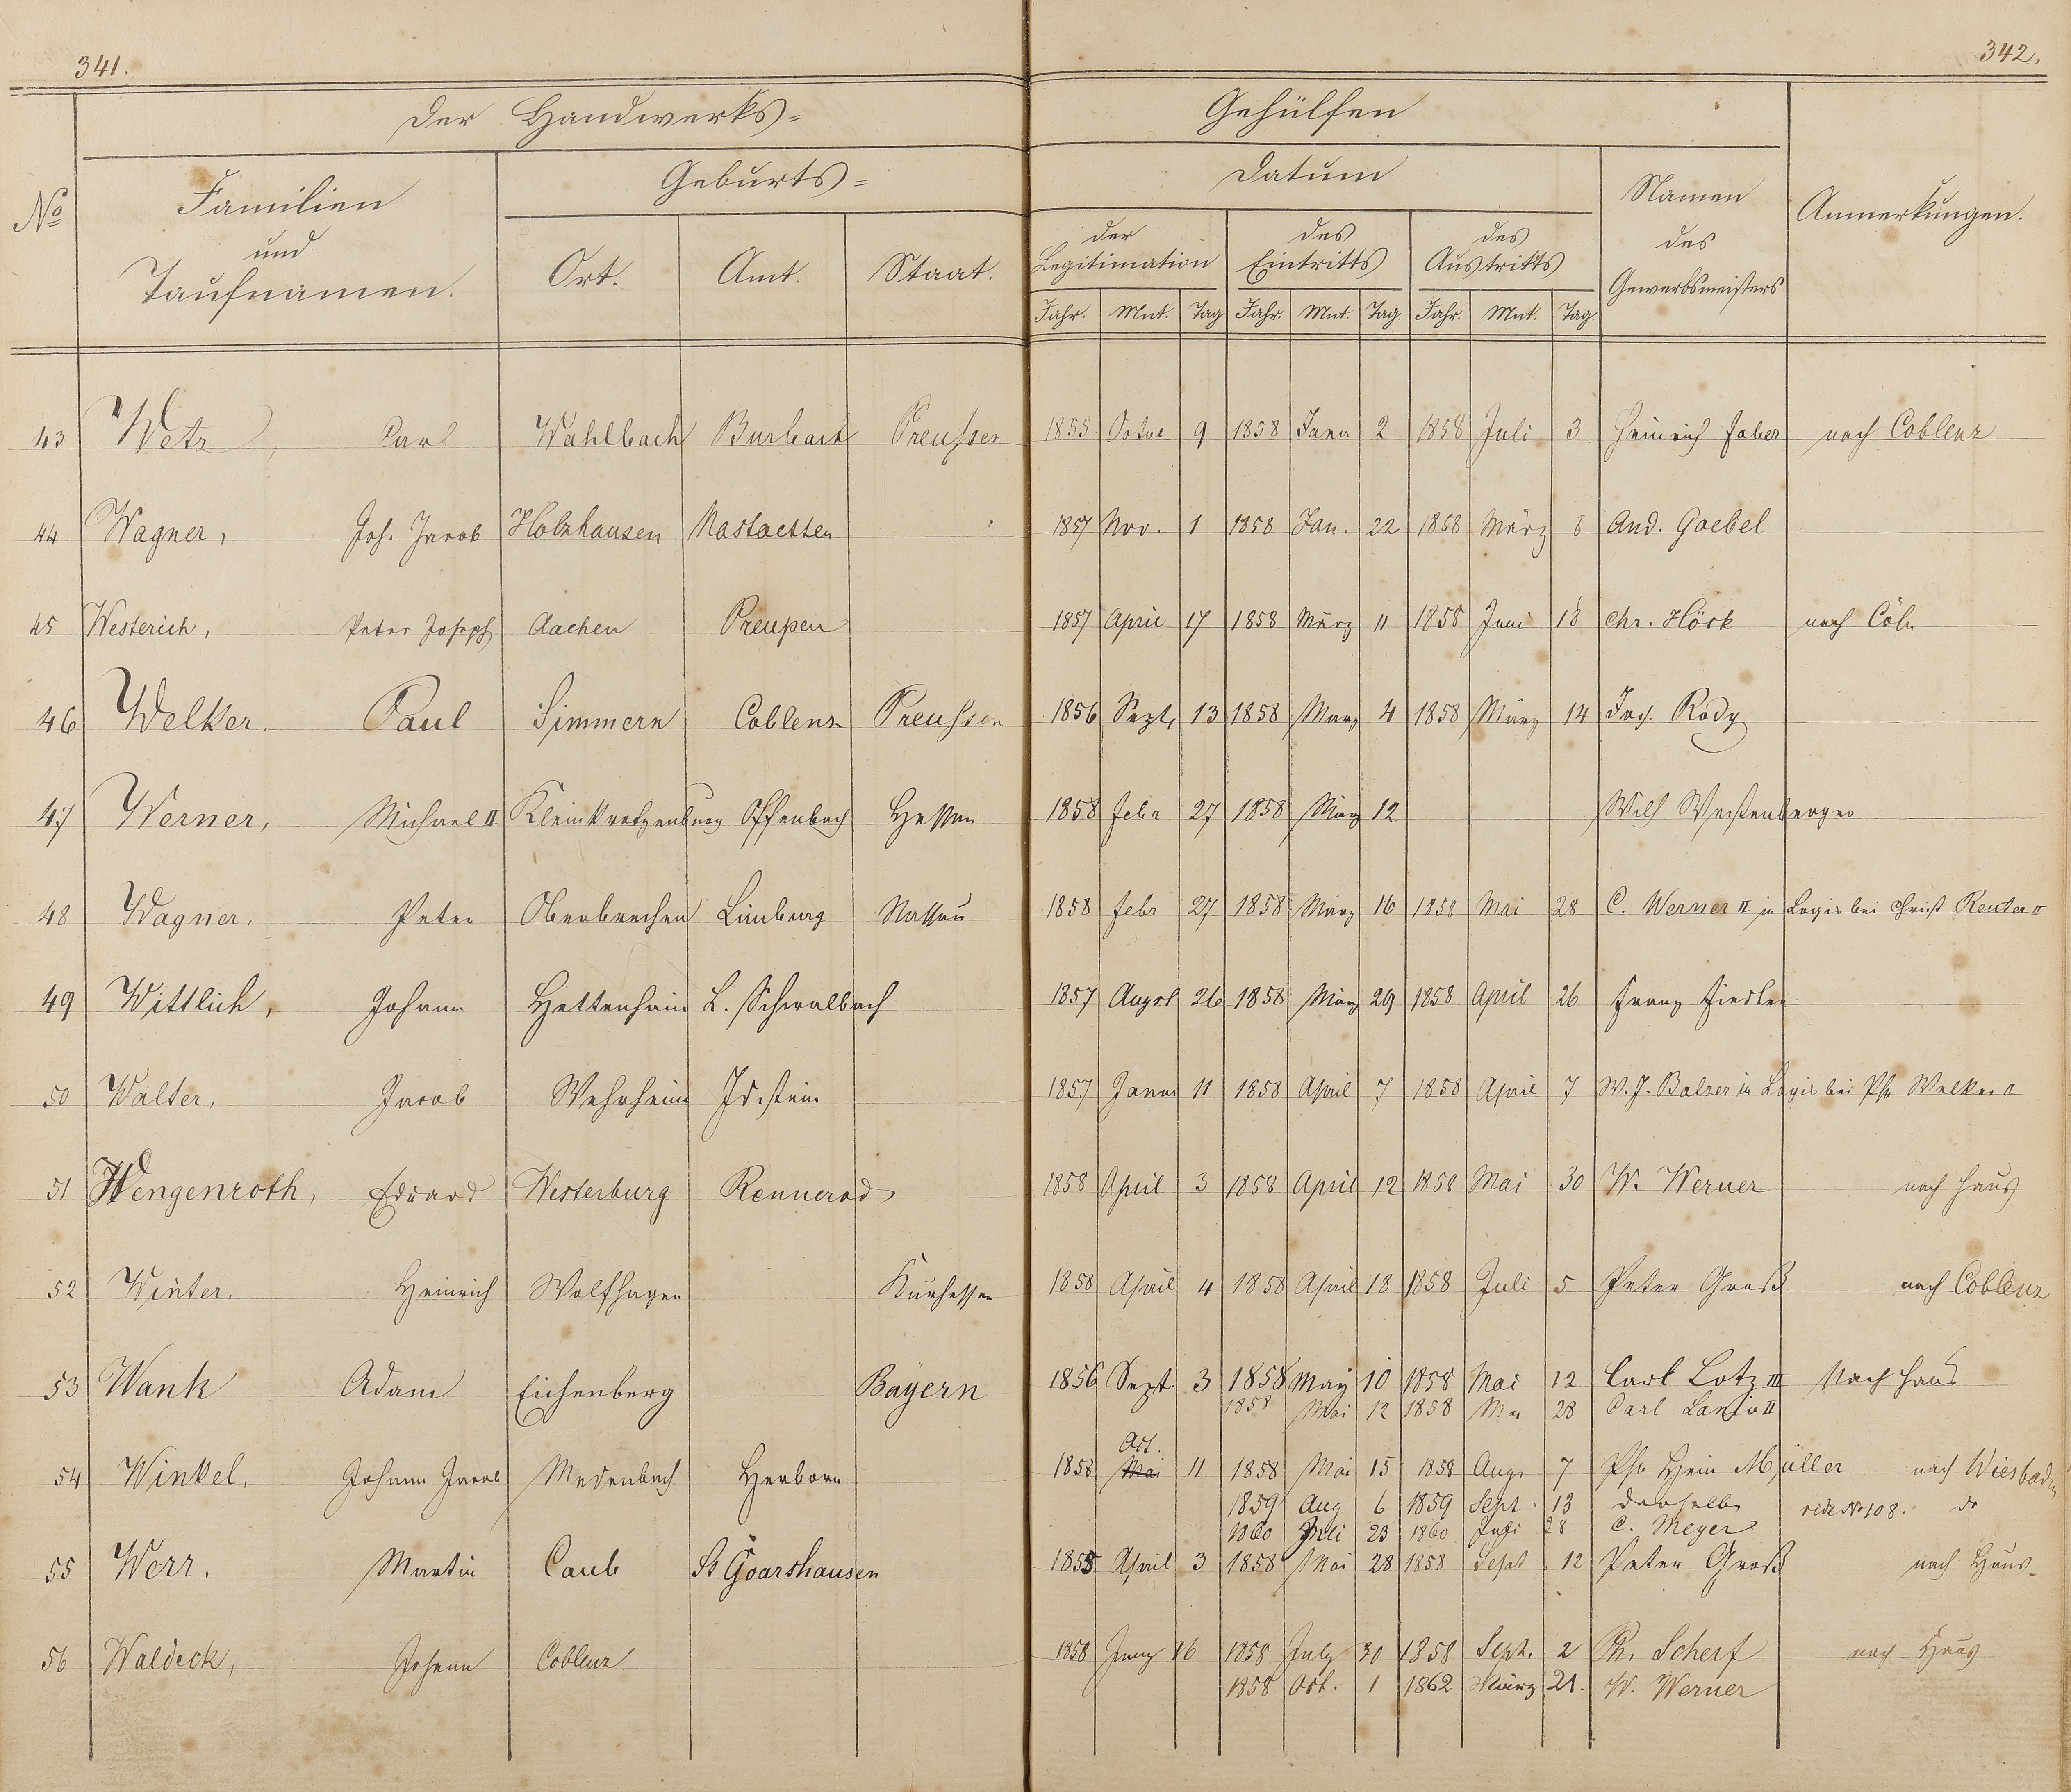 341.
342.
Der Handwerks=
Gehülfen
No
Familien
und
Taufnamen.
Geburts=
Ort.
Amt.
Staat.
Datum
der
Legitimation
des
Eintritts
des
Austritts
Jahr. Mnt. Tag Jahr. Mnt. Tag Jahr. Mnt. Tag.
Namen
des
Gewerbsmeisters
Anmerkungen.
43 Wetz, Carl Wahlbach Burbach Preussen 1855 9 1858 Janr 2 1858 Juli 3 Heinrich Faber nach Coblenz
44 Wagner, Joh. Jacob Holzhausen Nastaetten 1857 Nov. 1 1858 Jan. 22 1858 März 8 And. Goebel
45 Westerich, Peter Joseph Aachen Preußen 1857 April 17 1858 März 11 1858 Juni 18 Chr. Höck nach Cöln
46 Welker. Paul Simmern Coblenz Preussen 1856 Sept. 13 1858 März 4 1858 März 14 Rody
47 Werner, Michael II Kleinkrotzenburg Offenbach Hessen 1858 Febr 27 1858 März 12 Wilh Weissenberger
48 Wagner. Peter Oberbrechen Limburg Nassau 1858 Febr 27 1858 März 16 1858 Mai 28 C. Werner II in Logis bei Christ Reuter II
49 Wittlich, Johann Hettenhain L. Schwalbach 1857 Augst 26 1858 März 29 1858 April 26 Franz Fiedler
50 Walter, Jacob Wehrheim Idstein 1857 Janr 11 1858 April 7 1858 April 7 W. J. Balzer in Logis bei Ph Welker II
51 Wengenroth, Eduard Westerburg Rennerod 1858 April 3 1858 April 12 1858 Mai 30 W. Werner nach Haus
52 Winter. Heinrich Wolfhagen Kurhessen 1858 April 4 1858 April 18 1858 Juli 5 Peter Groß nach Coblenz
53 Wank Adam Eichenberg Bayern 1856 Sept 3 1858 May 10 1858 Mai 12 Carl Lotz III Nach Haus
1858 Mai 12 1858 Mai 28 Carl II
Oct.
54 Winkel. Johann Jacob Medenbach Herborn 1858 Mai 11 1858 Mai 15 1858 Aug. 7 Ph Hein Müller nach Wiesbaden
1859 Aug 6 1859 Sept. 13 derselbe vide No 108. do
1860 Juli 23 1860 Juli 28 C. Meyer
55 Werr. Martin Caub St Goarshausen 1855 April 3 1858 Mai 28 1858 Sept 12 Peter Groß nach Haus
56 Waldeck, Johann Coblenz 1858 Juny 16 1858 July 30 1858 Sept. 2 Ph. Scherf nach Haus
1858 Oct. 1 1862 März 21. W. Werner